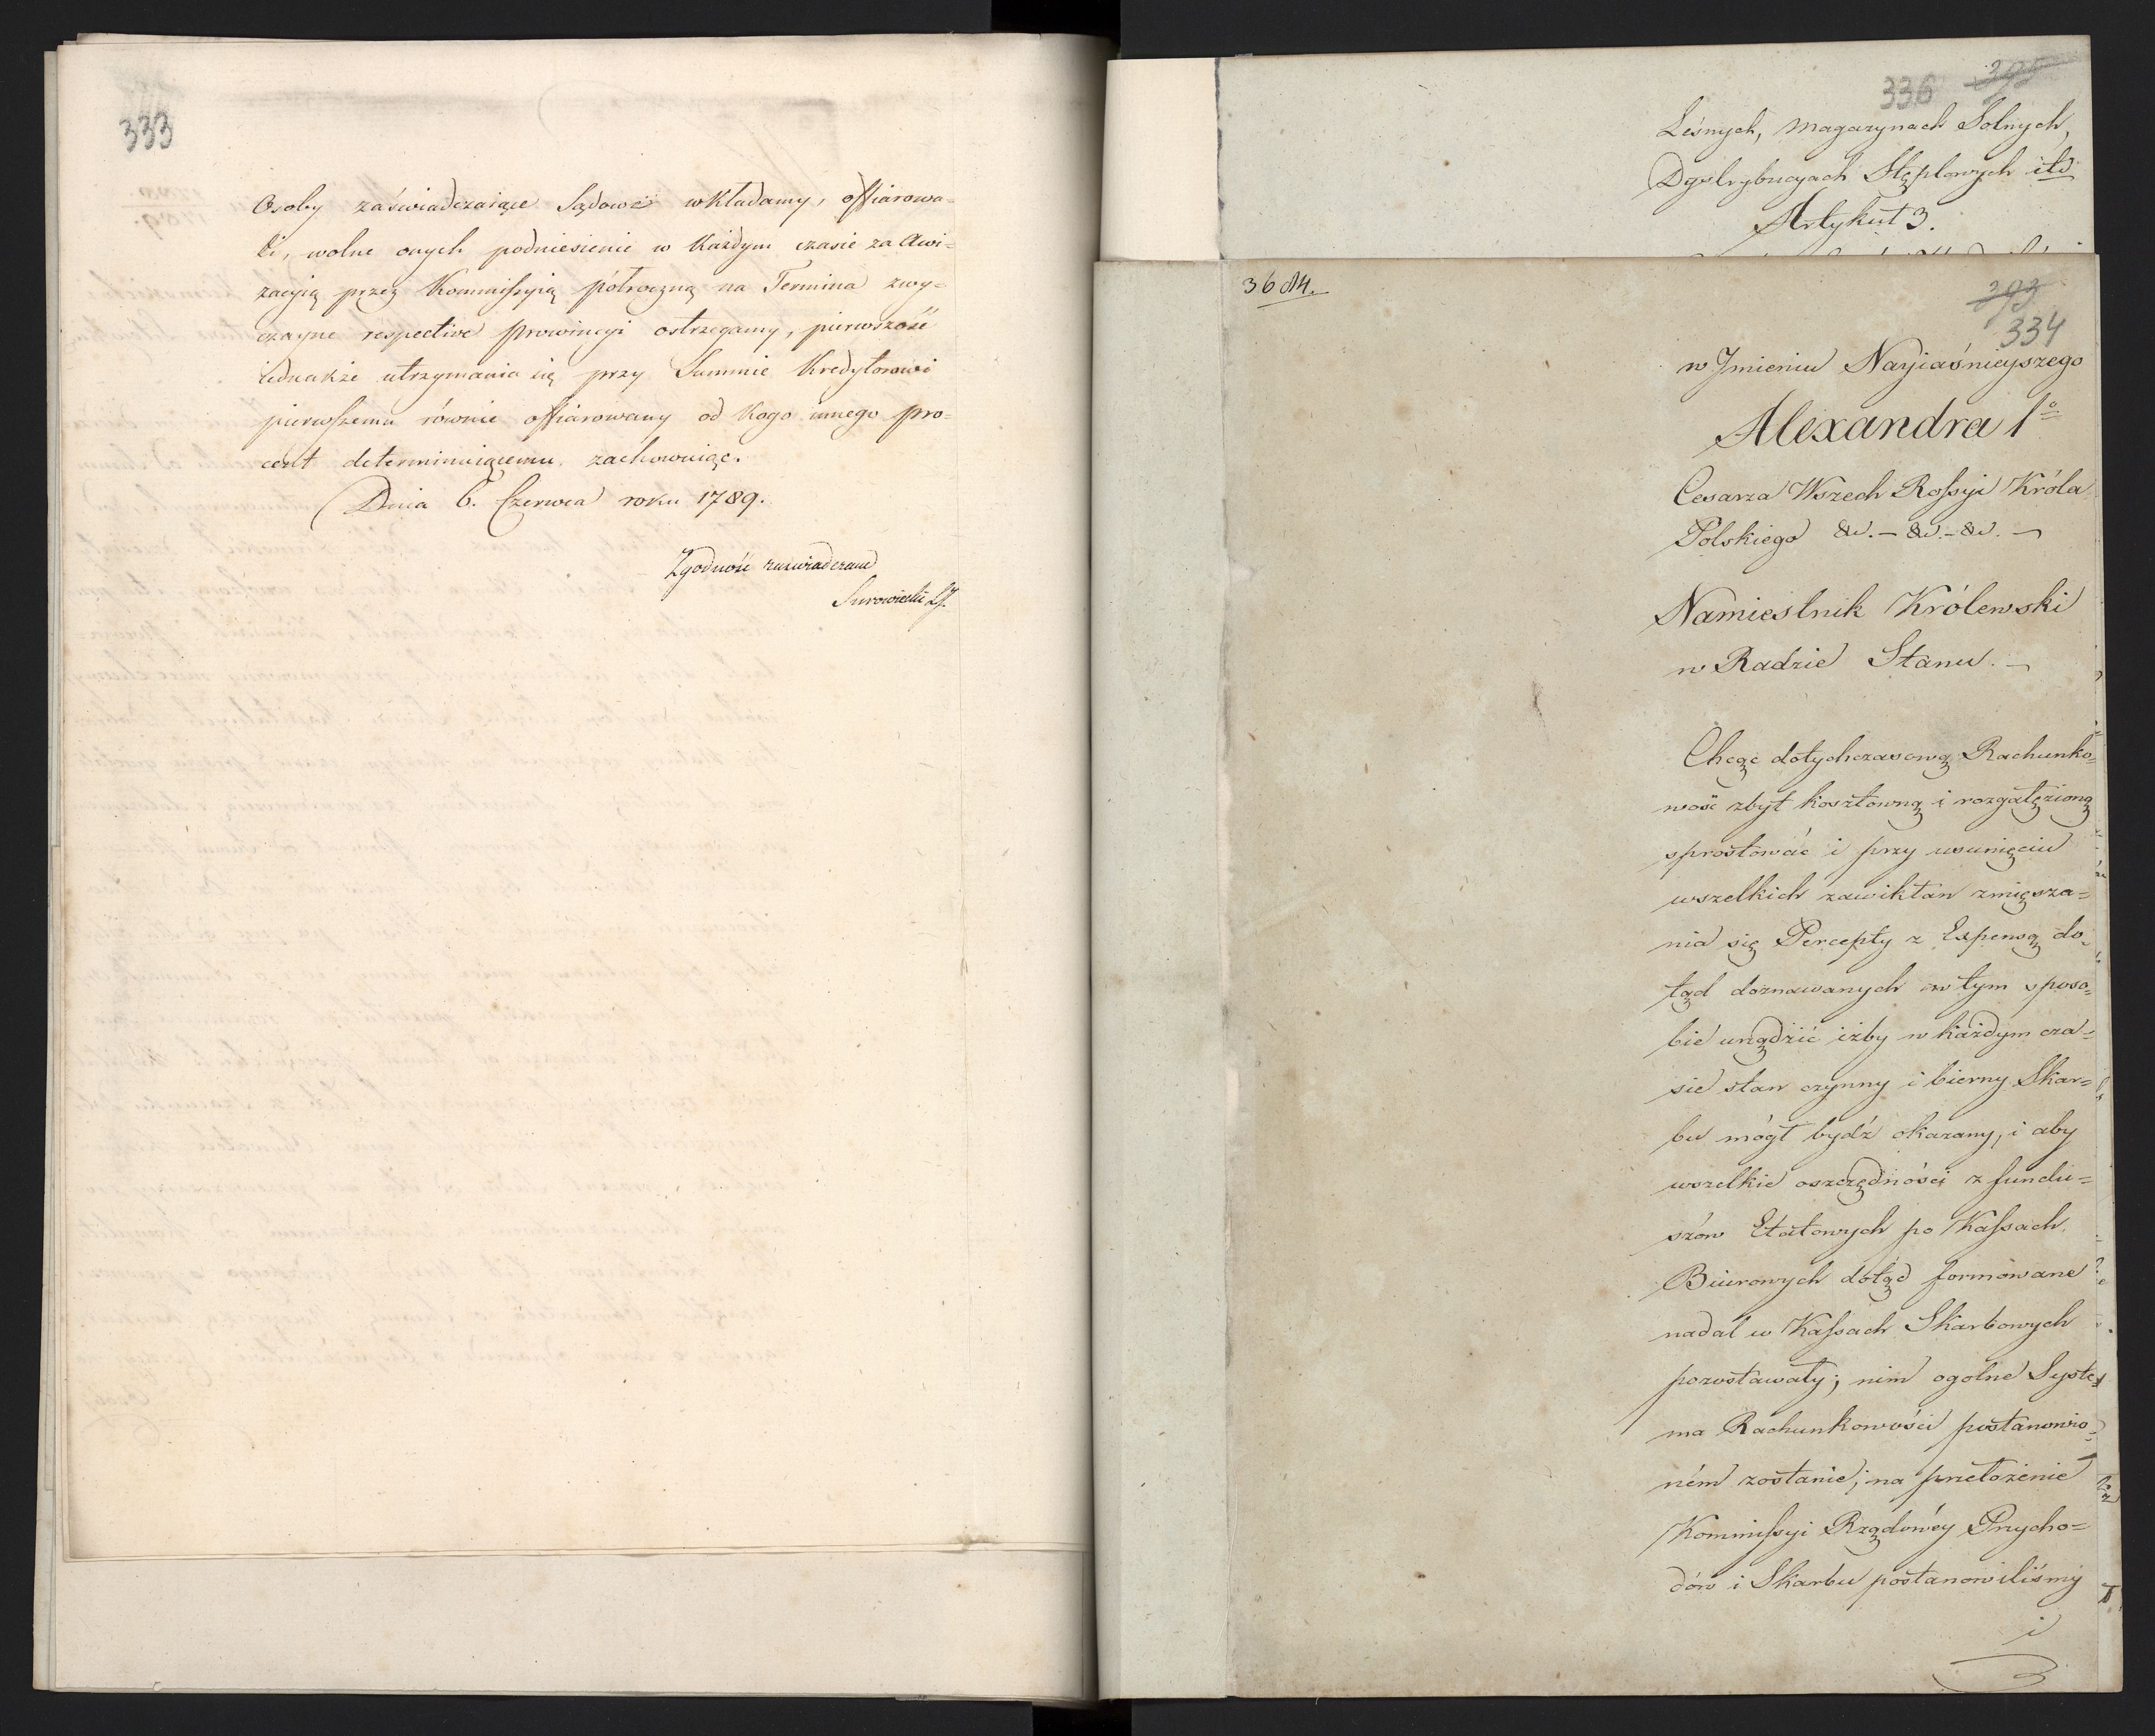 333
Osoby zaświadczaiące Sądowe wkładamy, offiarowa-
li, wolne onych podniesienie w Każdym czasie za Awi=
zacyią przez Kommissyią półroczną na Termina zwy=
czayne respective prowincyi ostrzegamy, pierwszość
iednakże utrzymania się przy Summie Kredytorowi
pierwszemu równie offiarowany od kogo innego pro=
cent determinuiącemu, zachowuiąc.
Dnia 6. Czerwca roku 1789.
Zgodność zaświadczam
Surowiecki
336 395
Leśnych, Magazynach Solnych,
Dystrybucyach Stęplowych itd
Artykuł 3.
3684.
393
334
w Jmieniu Nayiaśnieyszego
Alexandra 1º
Cesarza Wszech Rossyi Króla
Polskiego &c. – &c. – &c. –
Namiestnik Królewski
w Radzie Stanu. –
Chcąc dotychczasową Rachunko=
wość zbyt kosztowną i rozgałęzioną
sprostować i przy usunięciu
wszelkich zawikłań zmięsza=
nia się Percepty z Expensą do=
tąd doznawanych w tym sposo=
bie urządzić iżby w każdym cza=
sie stan czynny i bierny Skar=
bu mógł bydź okazany, i aby
wszelkie oszczędności z fundu=
szów Etatowych po Kassach
Biurowych dotąd formowane
nadal w Kassach Skarbowych
pozostawały; nim ogolne Syste=
ma Rachunkowości postanowio=
ném zostanie; na przełożenie
Kommissyi Rządowéy Przycho=
dów i Skarbu postanowiliśmy
i